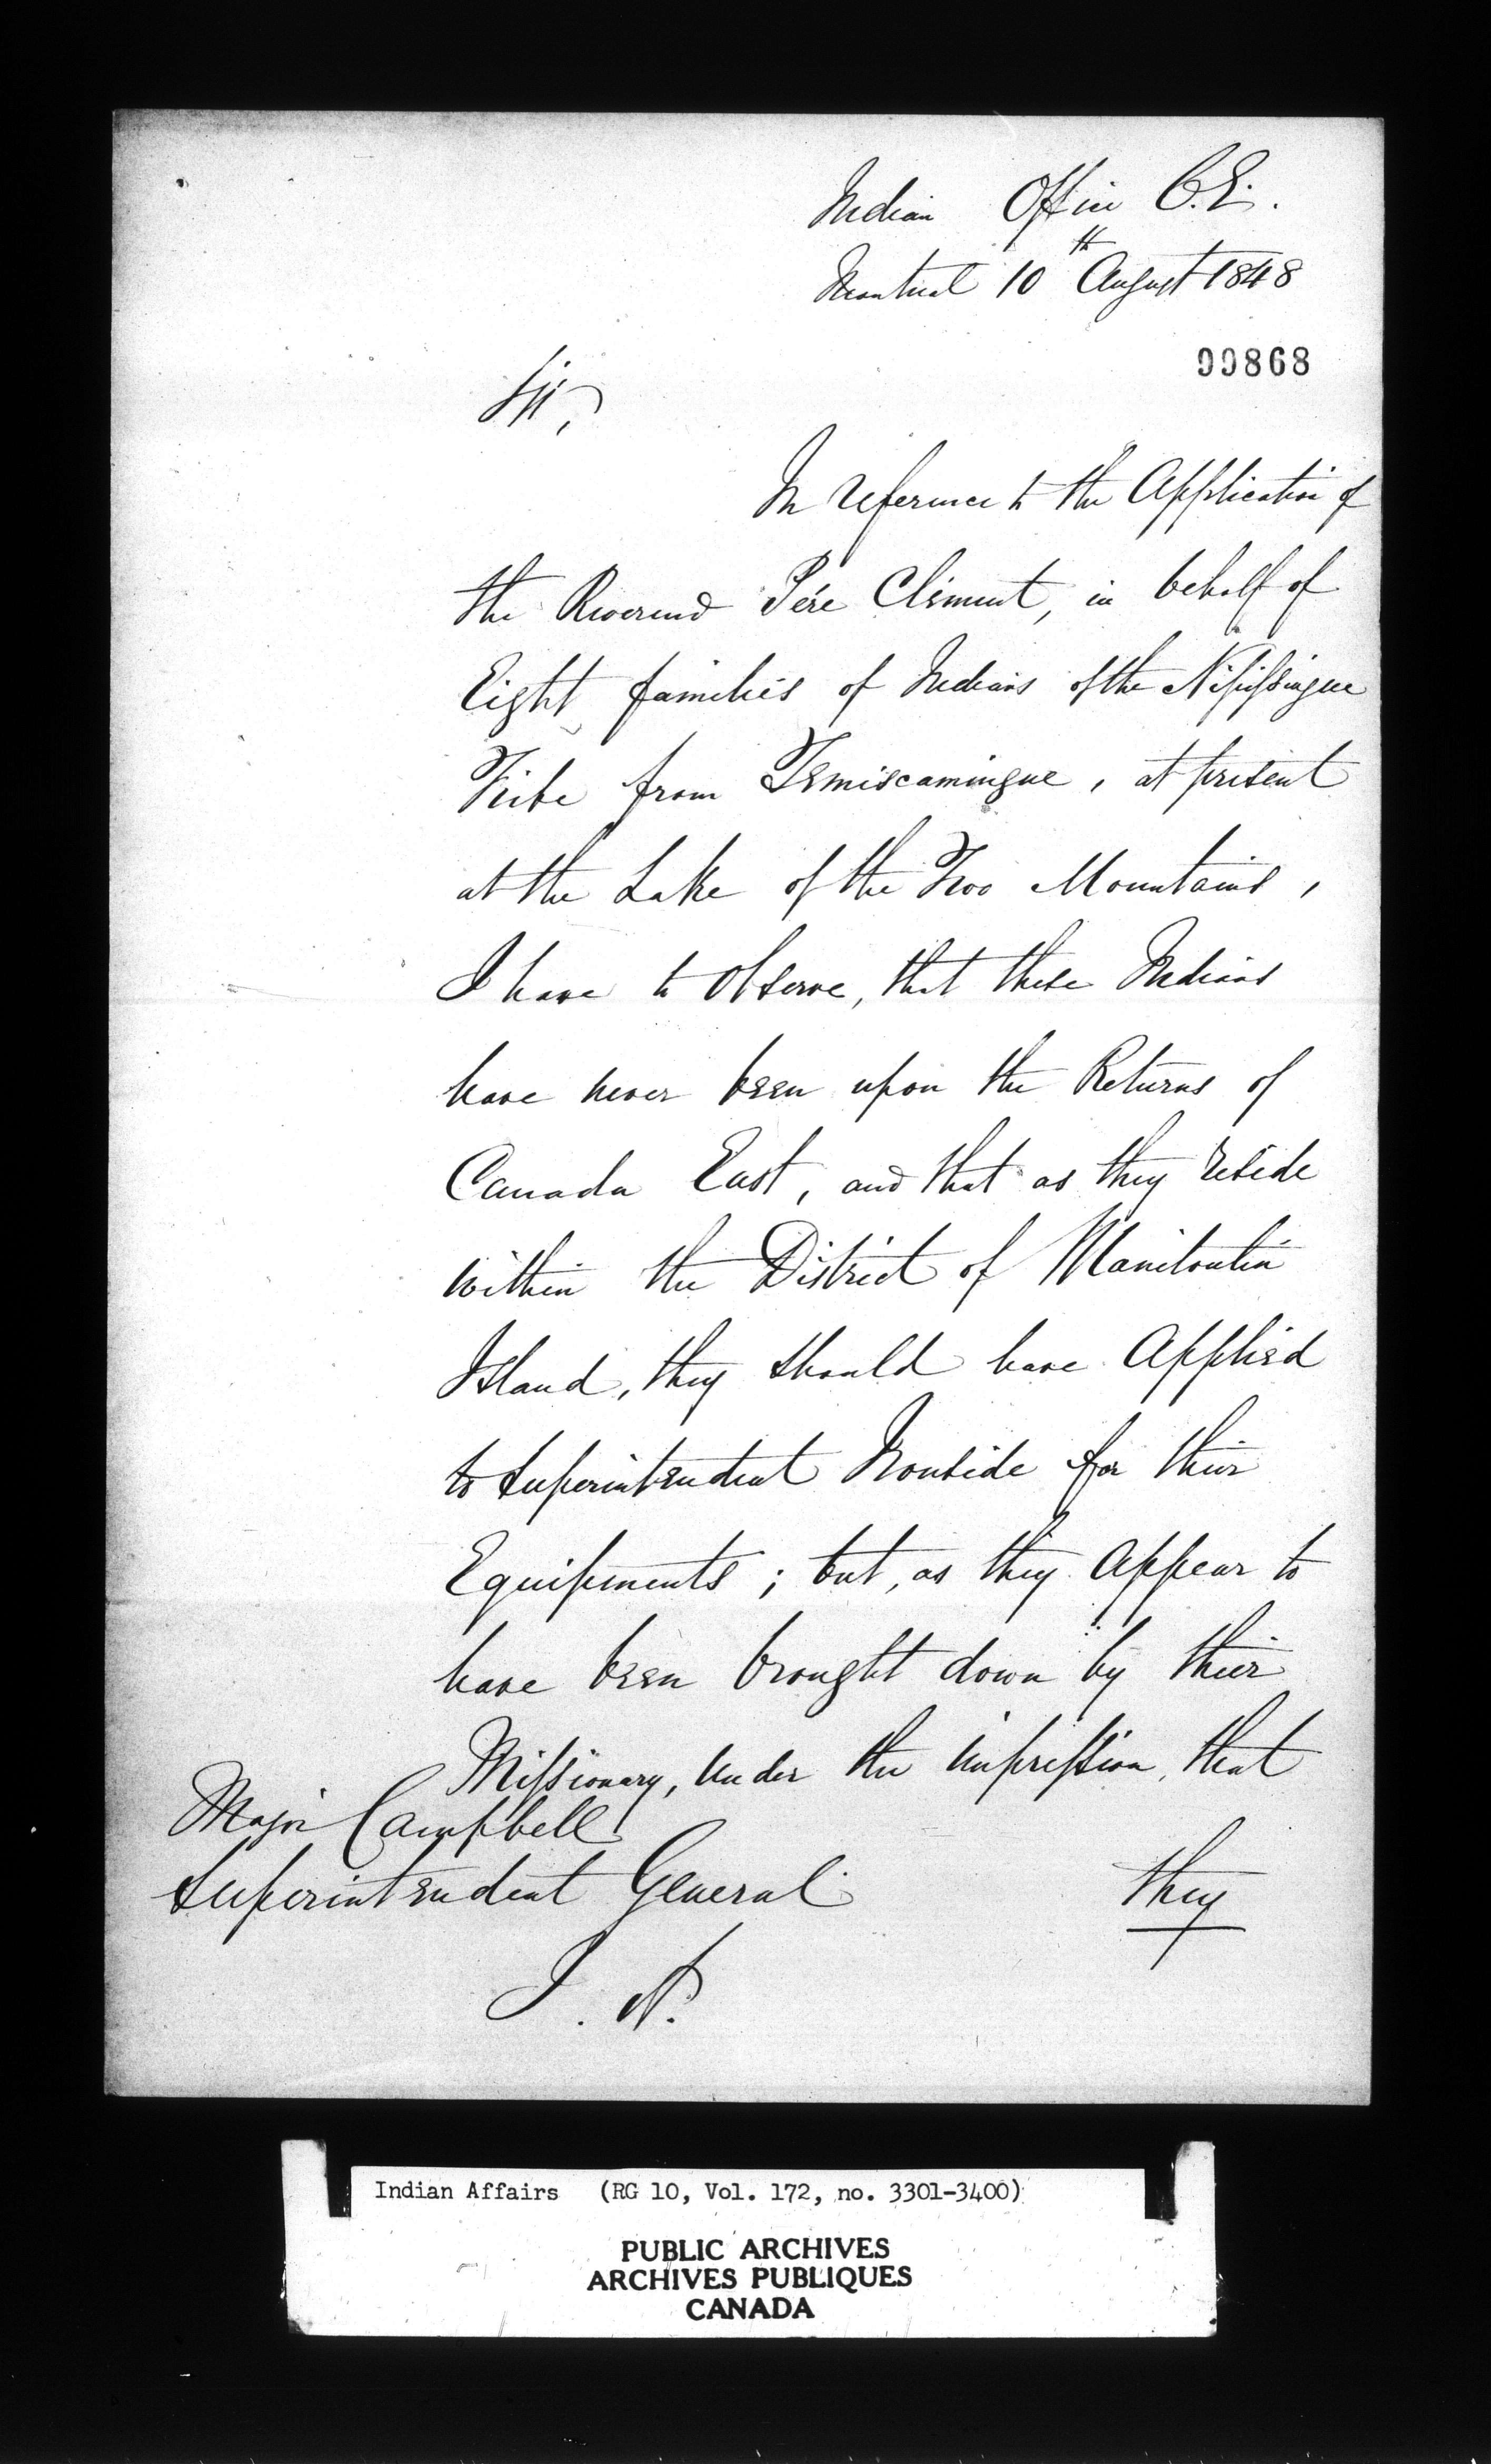 Indian Office C.E.
Montreal 10th August 1848
99868
Sir,
In reference to the Application of
the Reverend Père Clément, in behalf of
Eight families of Indians of the Nipissingue
Tribe from Temiscamingue, at present
at the Lake of the Two Mountains,
I have to Observe, that these Indians
have never been upon the Returns of
Canada East, and that as they reside
within the District of Manitoulin
Island, they should have Applied
to Superintendent Ironside for their
Equipments; but, as they Appear to
have been brought down by their
Missionary, under the impression, that
Major Campbell
Superintendent General
they
I. A.
Indian Affairs (RG 10, Vol. 172, no. 3301-3400)
PUBLIC ARCHIVES
ARCHIVES PUBLIQUES
CANADA